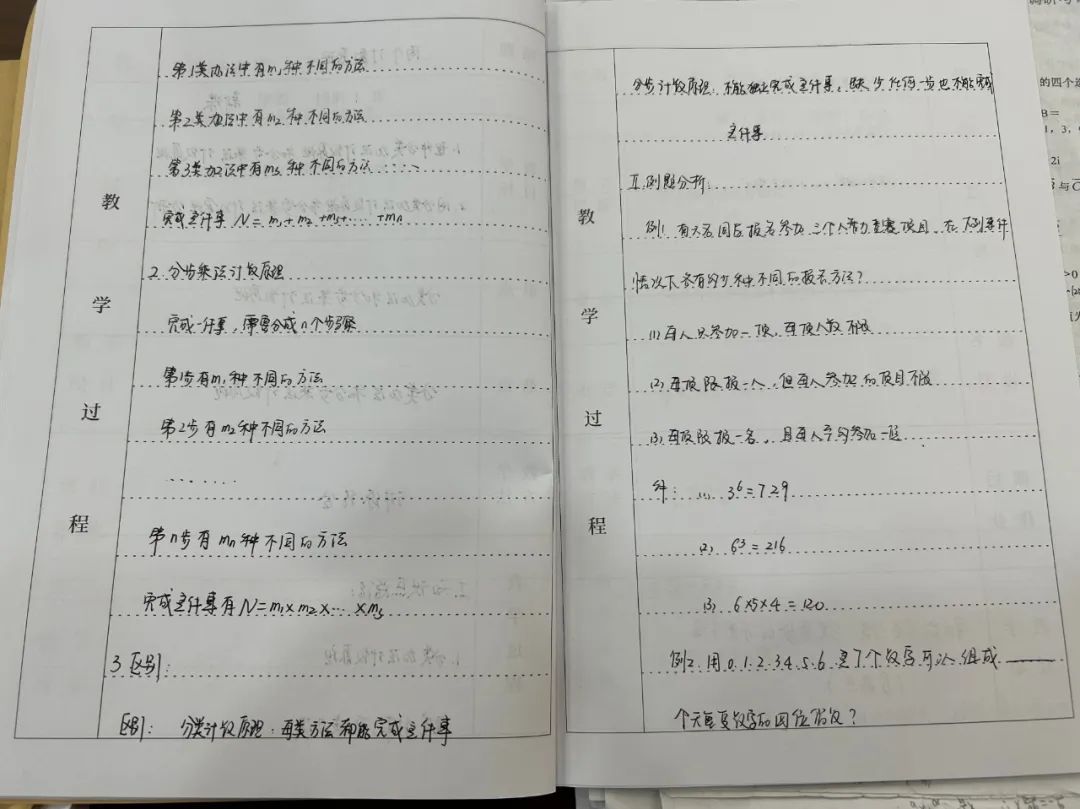 教学过程
第1类办法中有m1种不同的方法
第2类办法中有m2种不同的方法
第3类办法中有m3种不同的方法……
完成这件事 N = m1+m2+m3+…+mn
2. 分步乘法计数原理
完成一件事，需要分成n个步骤
第1步有m1种不同的方法
第2步有m2种不同的方法
……
第n步有mn种不同的方法
完成这件事有N=m1×m2×…×m
3. 区别：
区别： 分类计数原理：每类方法都能完成这件事
教学过程
分步计数原理：不能独立完成这件事，缺少任何一步也不能完成
这件事
Ⅱ.例题分析
例1. 有六名同学报名参加三个智力竞赛项目，在下列条件
情况下各有多少种不同的报名方法？
(1) 每人只参加一项，每项人数不限
(2) 每项限报一人，但每人参加的项目不限
(3) 每项限报一名，且每人至多参加一项
解： (1) 3^6=729
(2) 6^3=216
(3) 6×5×4=120
例2. 用0.1.2.3.4.5.6.这7个数字可以组成______
个无重复数字的四位数？
的四个选
B=
1，3，
2i
与
>0